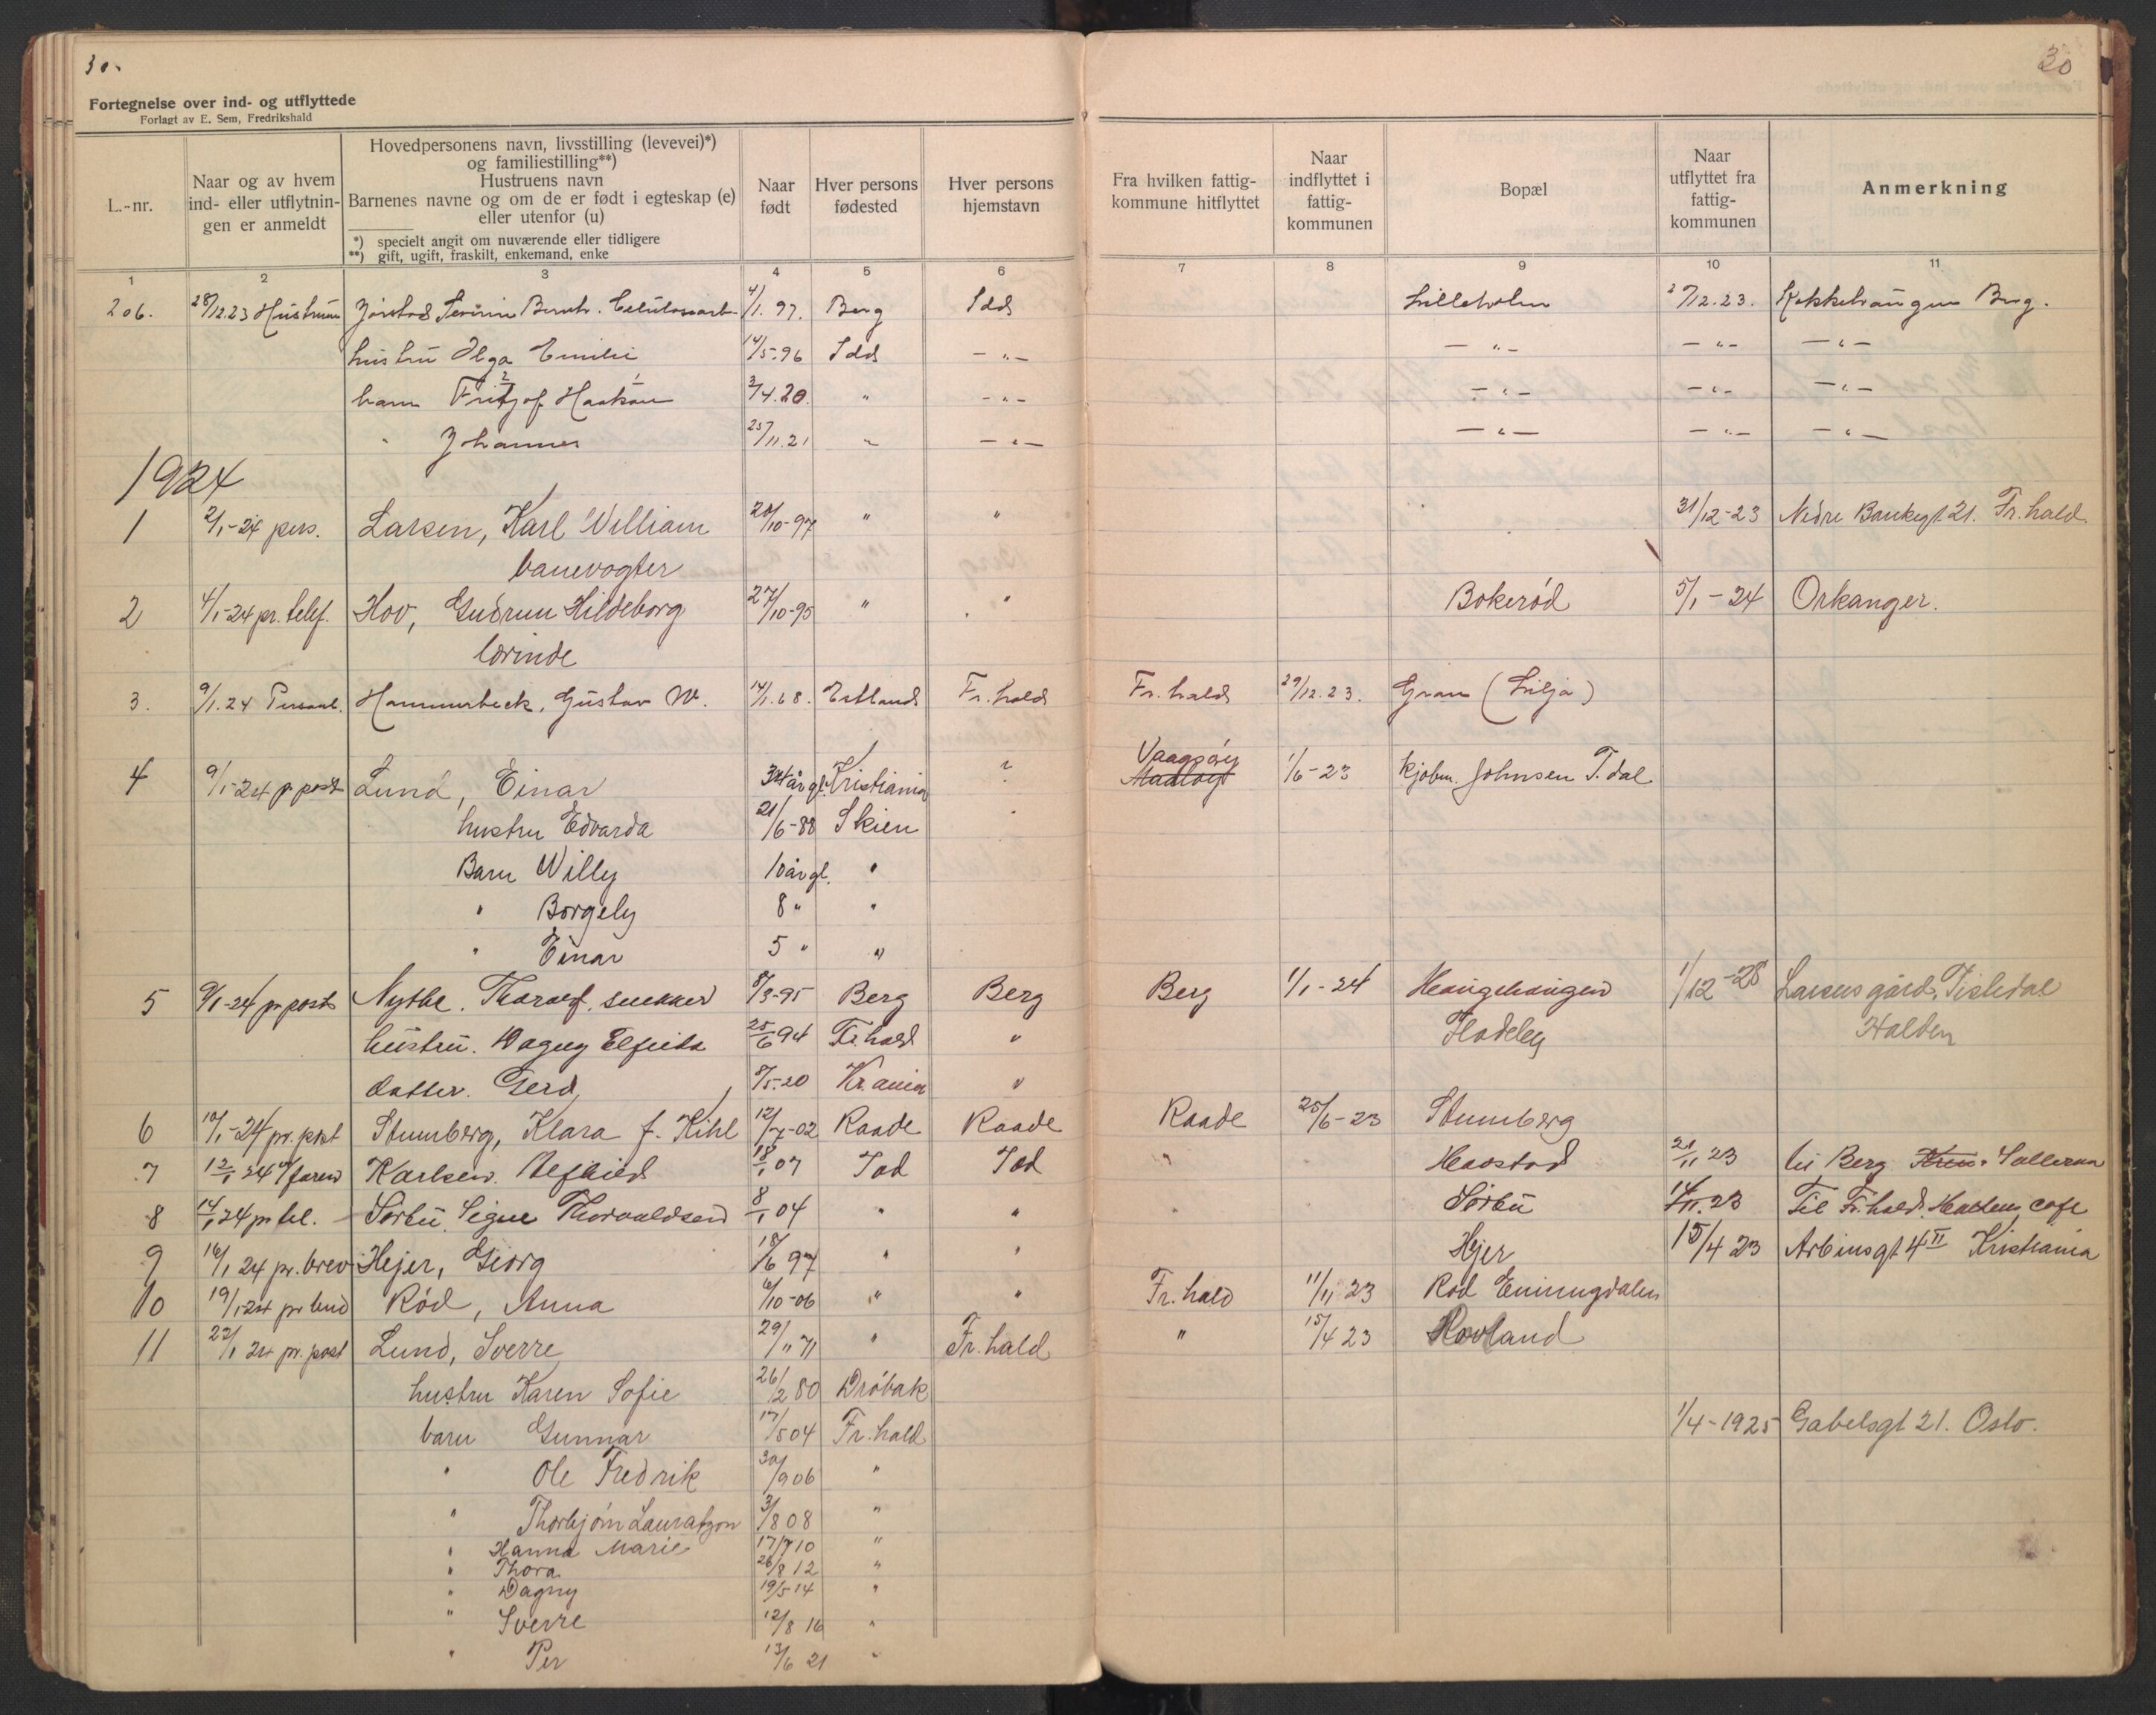 30.
30
Fortegnelse over ind- og utflyttede
Forlagt av E. Sem, Fredrikshald
L.-nr.
Naar og av hvem ind- eller utflytningen er anmeldt
Hovedpersonens navn, livsstilling (levevei)*)
og familiestilling**)
Hustruens navn
Barnenes navne og om de er født i egteskap (e)
eller utenfor (u)
*) specielt angit om nuværende eller tidligere
**) gift, ugift, fraskilt, enkemand, enke
Naar født
Hver persons fødested
Hver persons hjemstavn
Fra hvilken fattigkommune hitflyttet
Naar indflyttet i fattigkommunen
Bopæl
Naar utflyttet fra fattigkommunen
Anmerkning
1 2 3 4 5 6 7 8 9 10 11
206. 28/12.23 Hustruen Jørstad Severin Bernh. 4/1.97. Berg Idd Lilleholm 27/12.23. Berg.
hustru Olga Emilie 14/5-96 Idd -"- -"- -"- -"-
barn Fritjof Haakon 3/4.20. " -"- -"- -"- -"-
" Johannes 25/11.21 " -"- -"- -"- -"-
1924
1 2/1-24 pers. Larsen, Karl William 20/10-97 " " 31/12-23 Nedre Bankegt. 21. Fr.hald.
banevogter
2 4/1-24 pr. telef. Hov, Gudrun Hildeborg 27/10-95 " " Bokerød 5/1-24 Orkanger.
lærinde
3. 9/1.24 Personl. Hammerbeck, Gustav W. 14/1.68. Estland Fr.hald Fr.hald 29/12.23. Gran (Lilja)
Vaagsøy
4 9/1-24 p. post Lund, Einar 34 år gl. Kristiania ? 1/6-23 kjøbm. Johnsen T.dal
hustru Edvarda 21/6-88 Skien
Barn Willy 10 år gl. "
" Borgely 8 " "
" Einar 5 " "
5 9/1-24 pr post Nythe. Thoralf. snekker 8/3-95 Berg Berg Berg 1/1-24 Haugehaugen 1/12-28 Larsens gård, Tistedal
hustru. Dagny Elfrida 25/6 94 Fr.hald " Flodeby Halden
datter. Gerd, 8/5-20 Kr.ania "
6 10/1-24 pr. post Stumberg, Klara f. Kihl 12/7-02 Raade Raade Raade 25/6-23 Stumberg
7 12/1 24 faren Karlsen. 18/1 07 Idd Idd " Havstad 21/11 23 til Berg
8 14/1 24 pr tel. Sørbü, Signe Thorvaldsen 8/1 04 " " " Sørbü 14/11.23 Til Fr.hald. cafe
9 16/1 24 pr. brev Hejer, Georg 18/6 97 " " Hjer 15/4 23 Arbinsgt 4 II Kristiania
10 19/1 24 pr bud Rød, Anna 6/10-06 " " Fr.hald 11/11 23 Rød Enningdalen
11 22/1 24 pr. post Lund, Sverre 29/11 71 " Fr.hald " 15/4 23 Rovland
hustru Karen Sofie 26/2 80 Drøbak
barn Gunnar 17/5 04 Fr.hald 1/4-1925 Gabelsgt 21. Oslo.
" Ole Fredrik 30/9 06 "
" Thorbjørn Lauratzon 3/8 08 "
" Hanna Marie 17/7 10 "
" Thora 26/8 12 "
" Dagny 19/5 14 "
" Sverre 12/8 16 "
" Per 13/6 21 "